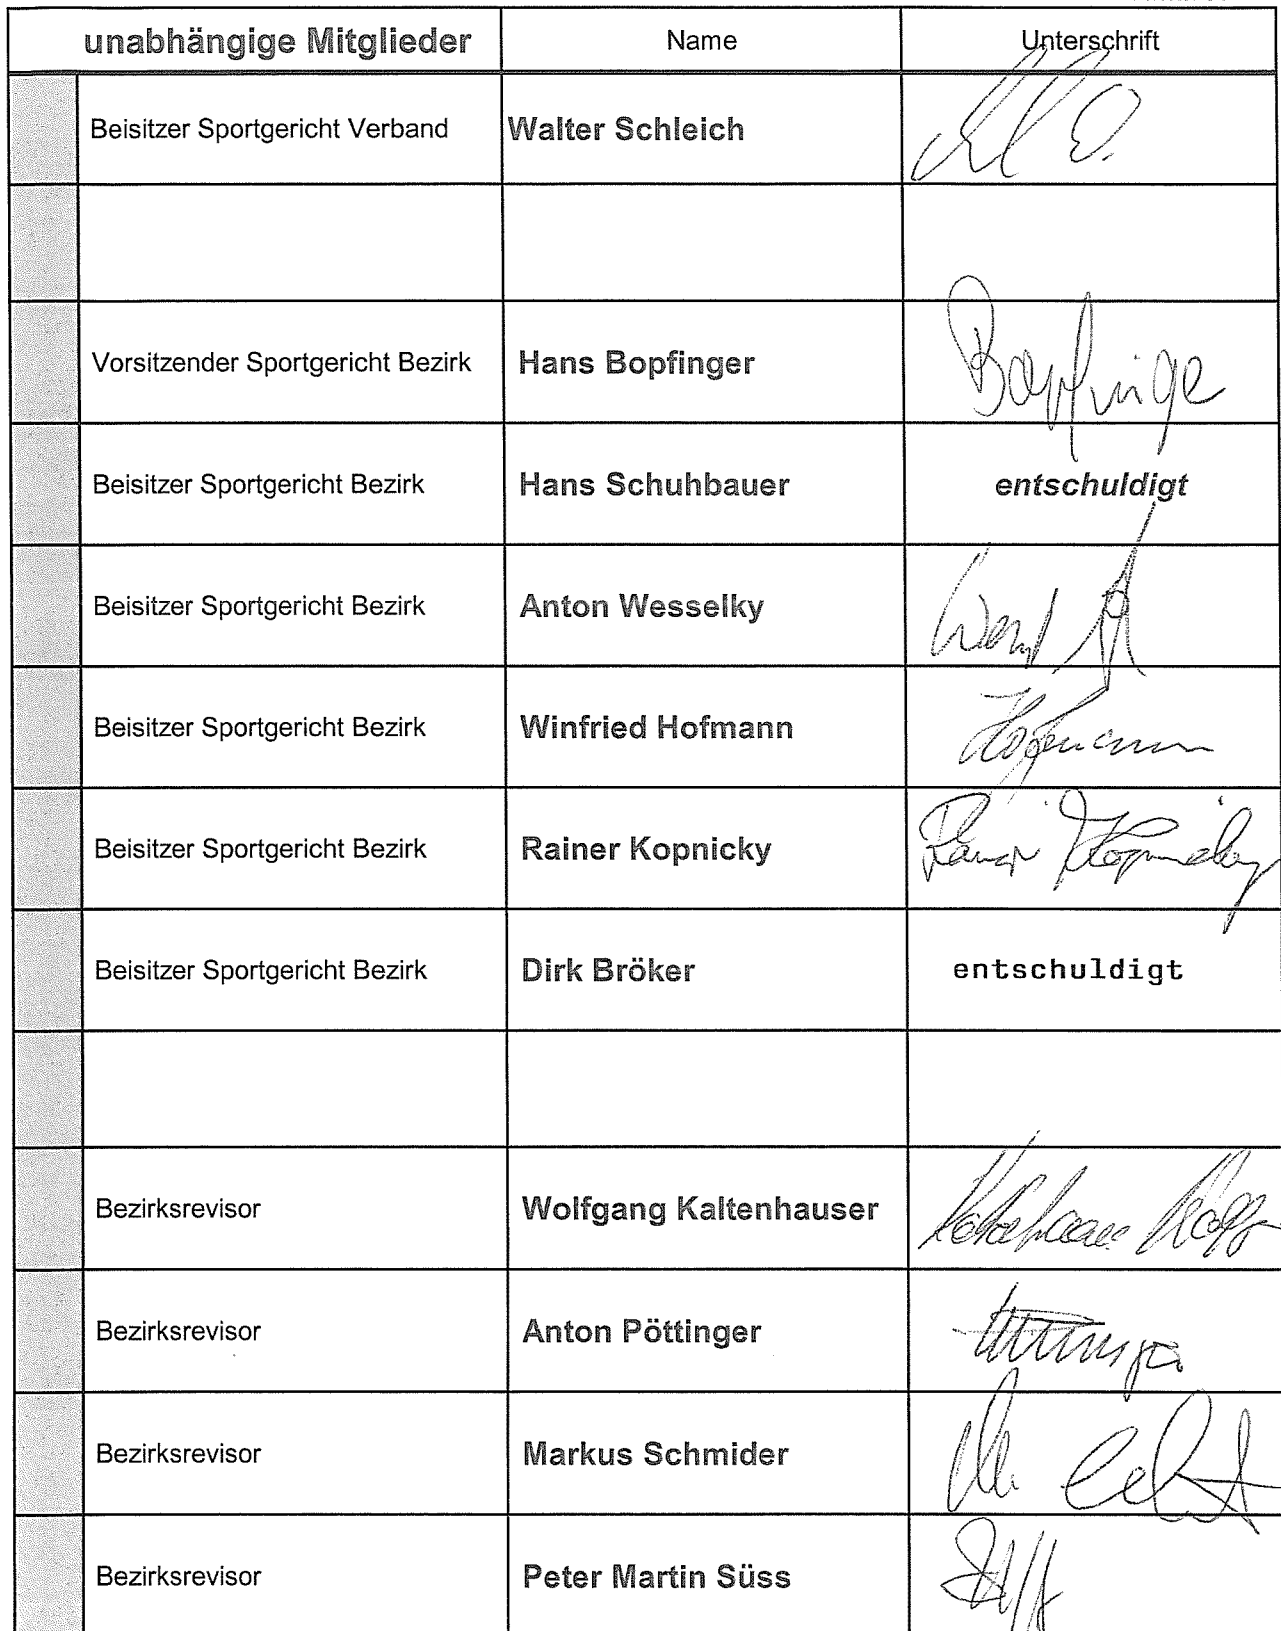 unabhängige Mitglieder Name Unterschrift
Beisitzer Sportgericht Verband Walter Schleich
Vorsitzender Sportgericht Bezirk Hans Bopfinger Bopfinge
Beisitzer Sportgericht Bezirk Hans Schuhbauer entschuldigt
Beisitzer Sportgericht Bezirk Anton Wesselky
Beisitzer Sportgericht Bezirk Winfried Hofmann Hofmann
Beisitzer Sportgericht Bezirk Rainer Kopnicky Rainer Kopnicky
Beisitzer Sportgericht Bezirk Dirk Bröker entschuldigt
Bezirksrevisor Wolfgang Kaltenhauser
Bezirksrevisor Anton Pöttinger
Bezirksrevisor Markus Schmider
Bezirksrevisor Peter Martin Süss